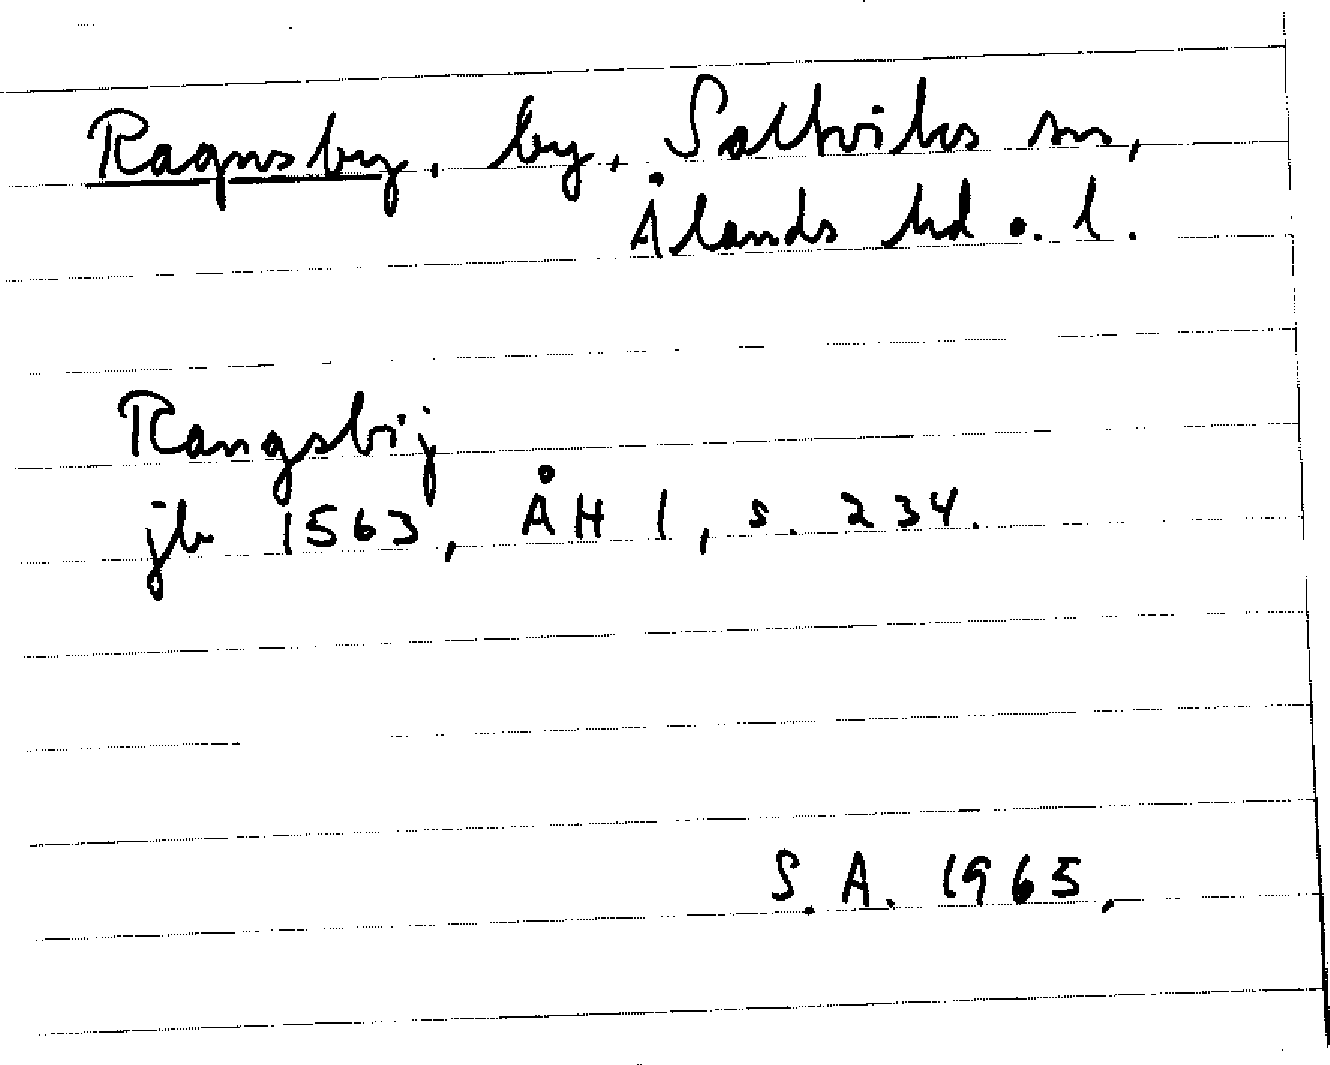 Ragnsby. by. Saltviks sn,
Ålands hd o. l.
Rangsbij
jb 1563, ÅH 1, s. 234.
S.A. 1965,